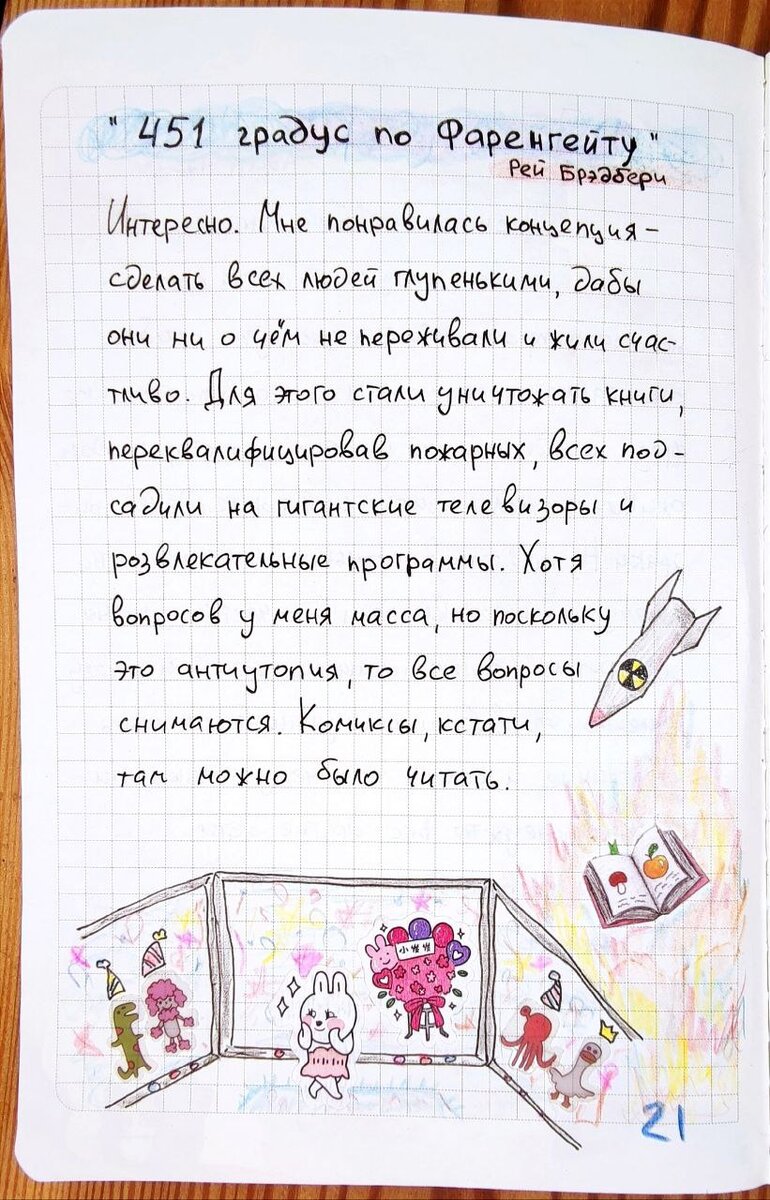 " 451 градус по Фаренгейту "
Рей Брэдбери
Интересно. Мне понравилась концепция -
сделать всех людей глупенькими, дабы
они ни о чём не переживали и жили счас-
тливо. Для этого стали уничтожать книги,
переквалифицировав пожарных, всех под-
садили на гигантские телевизоры и
розвлекательные программы. Хотя
вопросов у меня масса, но поскольку
это антиутопия, то все вопросы
снимаются. Комиксы, кстати,
там можно было читать.
21